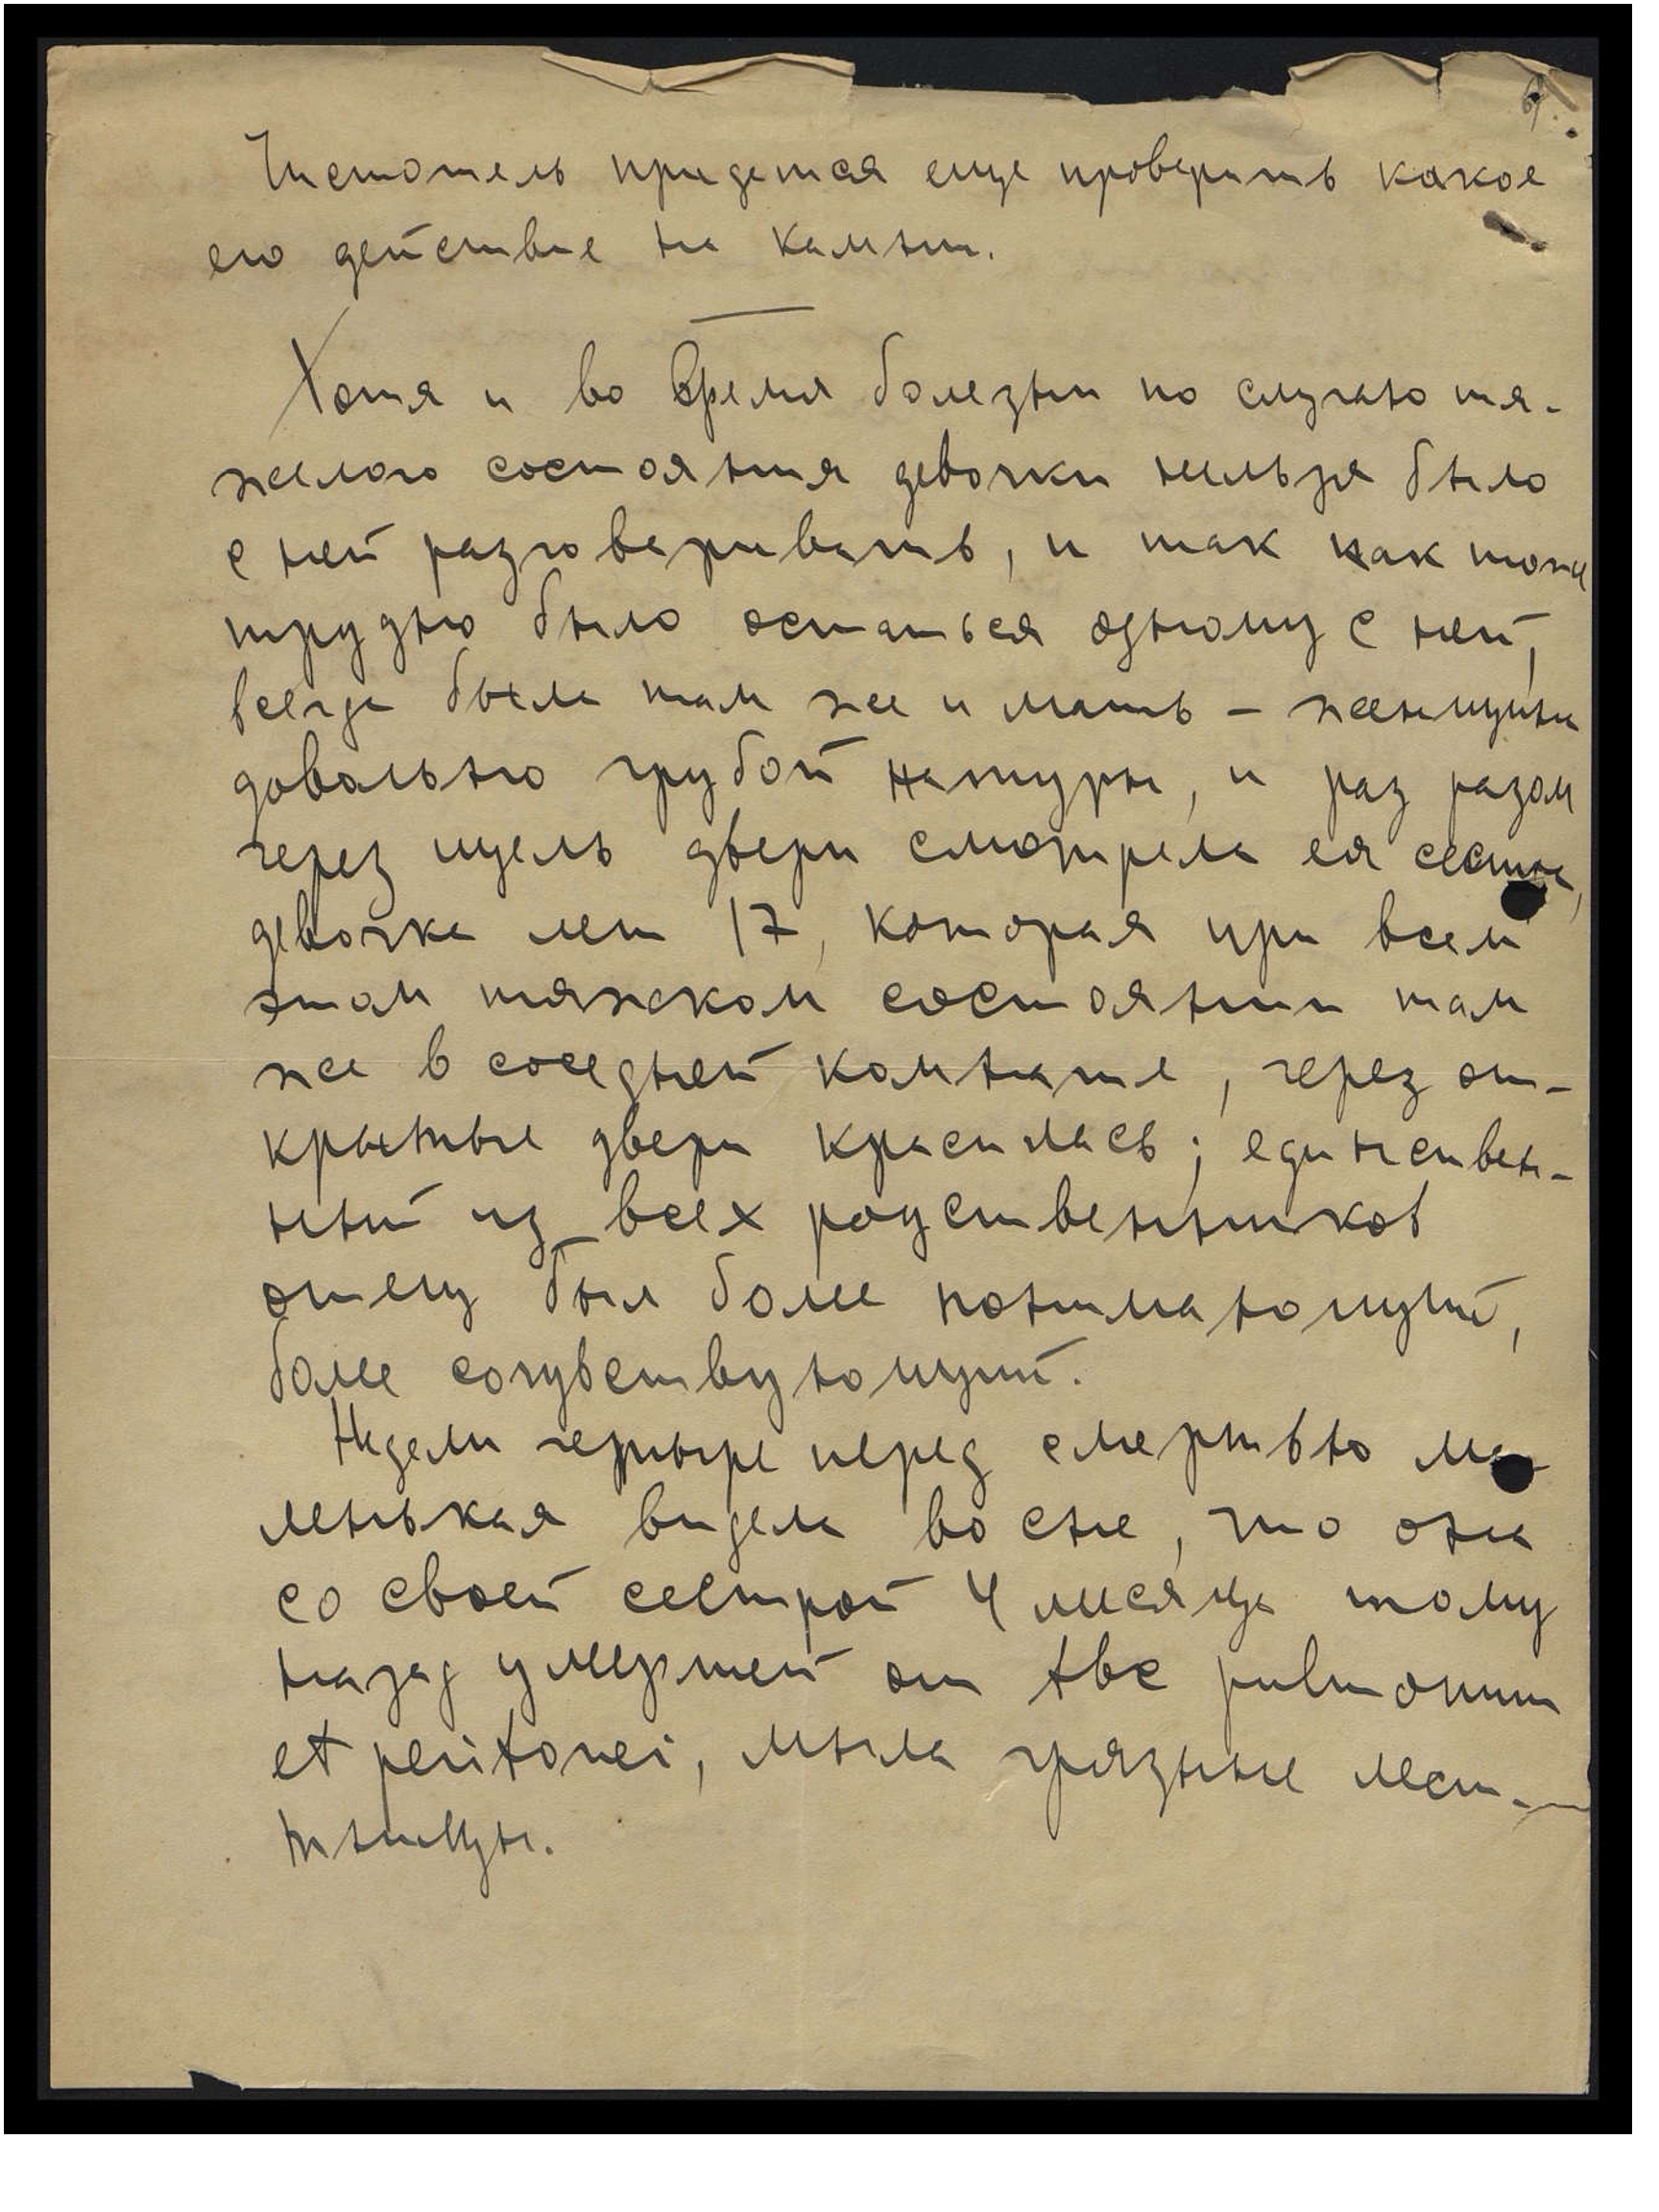 Чистотель придется еще проверить какое
его действие на камни.
Хотя и во время болезни по случаю тя-
желого состояния девочки нельзя было
с ней разговаривать, и так как тоже
трудно было остаться одному с ней,
всегда была там же и мать – женщина
довольно грубой натуры, и раз разом
через щель двери смотрела ея сестра,
девочка лет 17, которая при всем
этом тяжком состоянии там
же в соседней комнате, через от-
крытые двери красилась; единствен-
ный из всех родственников
отец был более понимающий,
более сочувствующий.
Недели четыре перед смертью ма-
ленькая видела во сне, что она
со своей сестрой 4 месяца тому
назад умершей от tbc pulmonum
et peritonei, мыла грязные лест-
ницы.